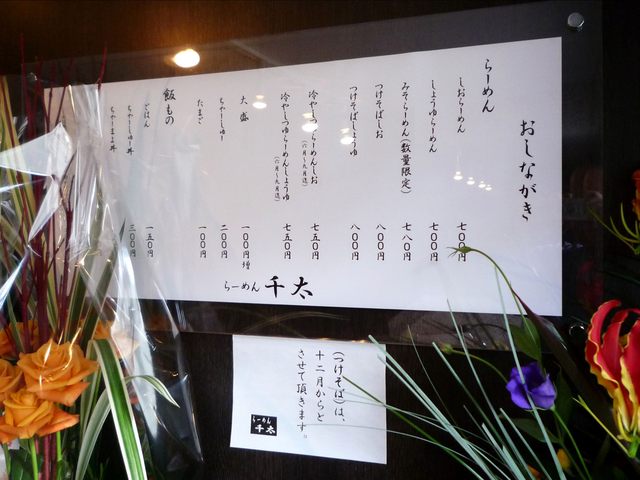 おしながき
らーめん
しおらーめん 七〇〇円
しょうゆらーめん 七〇〇円
みそらーめん(数量限定) 七八〇円
つけそばしお 八〇〇円
つけそばしょうゆ 八〇〇円
冷やしつゆらーめんしお 七五〇円
(六月〜九月迄)
冷やしつゆらーめんしょうゆ 七五〇円
(六月〜九月迄)
大盛 一〇〇円増
ちゃーしゅー 二〇〇円
たまご 一〇〇円
飯もの
ごはん 一五〇円
ちゃーしゅー丼 三〇〇円
ちゃーまよ丼
らーめん 千太
(つけそば)は、
十二月からと
させて頂きます。
らーめん
千太